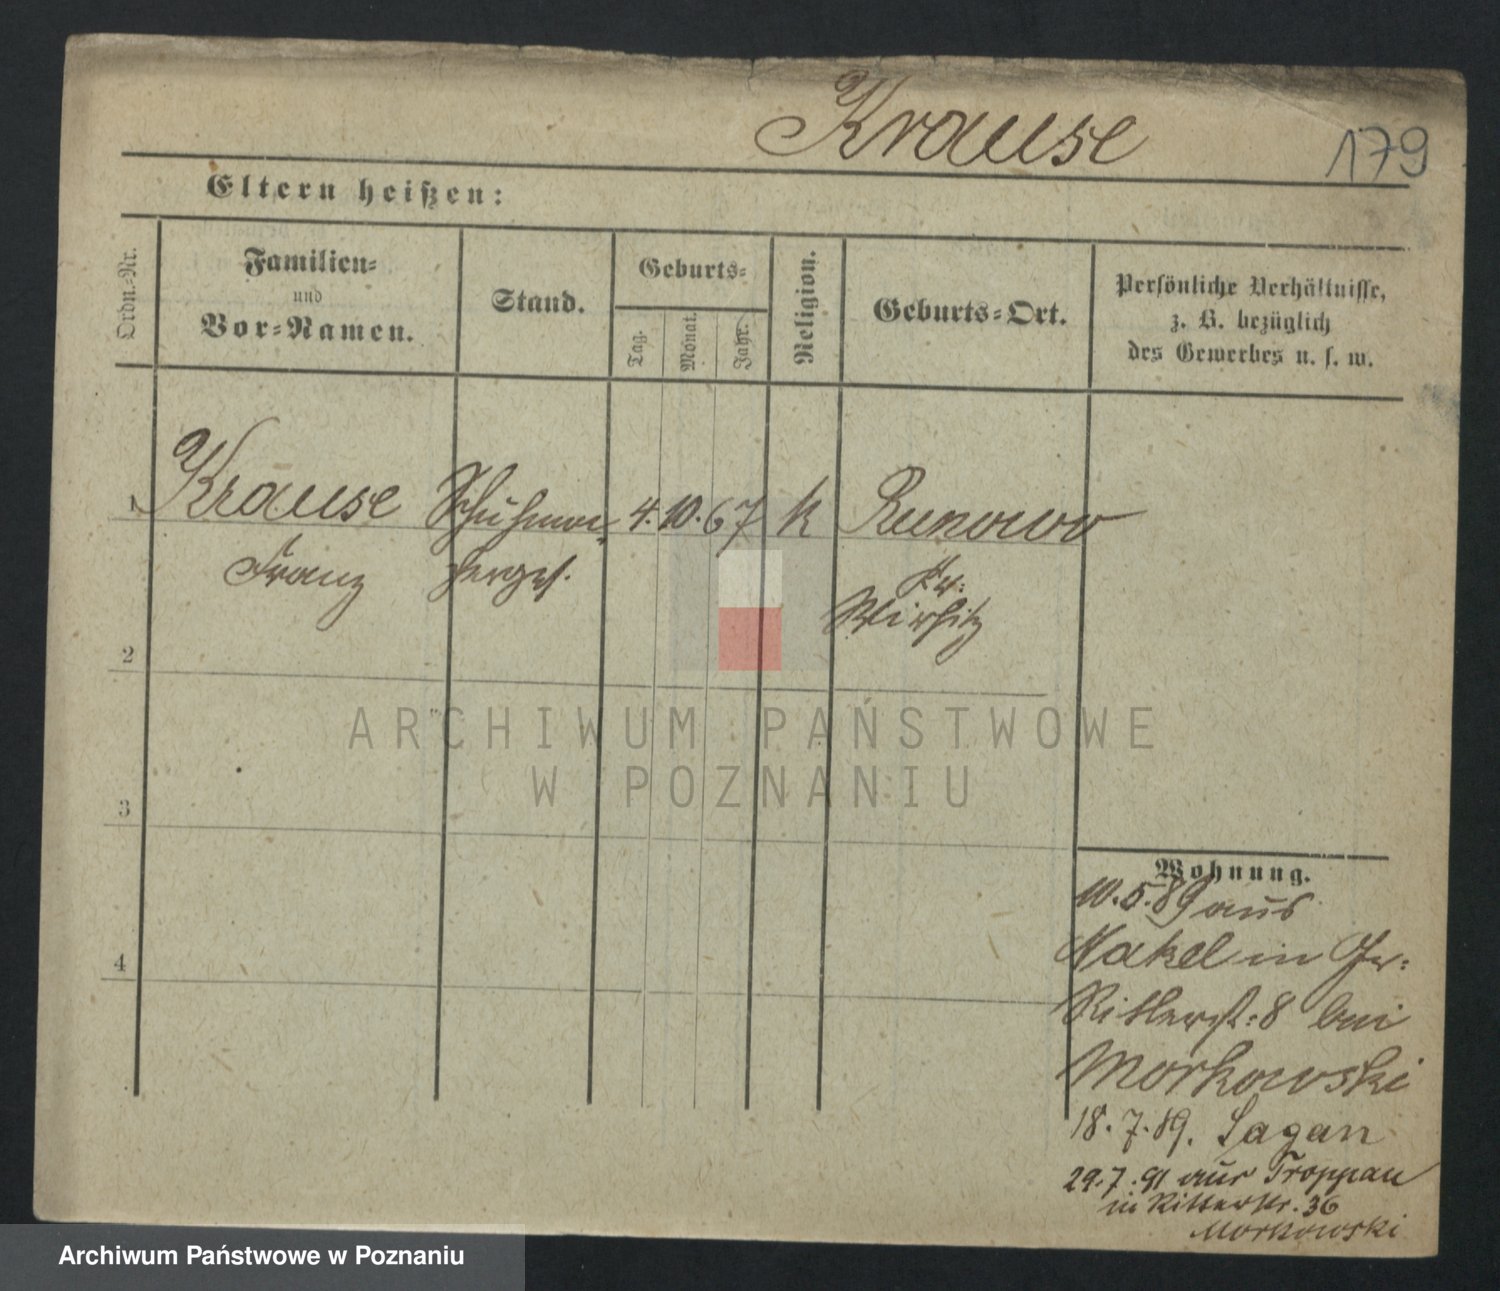 Krause
179
Eltern heißen:
Ordn.-Nr.
Familien-
und
Vor-Namen.
Stand.
Geburts-
Tag.
Monat.
Jahr.
Religion.
Geburts-Ort.
Persönliche Verhältnisse,
z. B. bezüglich
des Gewerbes u. s. w.
1 Krause Schuhma- 4. 10. 67 k Runowo
Franz herges. Kr.
Wirsitz
2
3
4
Wohnung.
10.5.89 aus
Nakel in Gr.
Ritterst: 8 bei
Morkowski
18.7.89. Sagan
29.7.91 aus Troppau
in Ritterstr. 36
Morkowski
ARCHIWUM PAŃSTWOWE
W POZNANIU
Archiwum Państwowe w Poznaniu